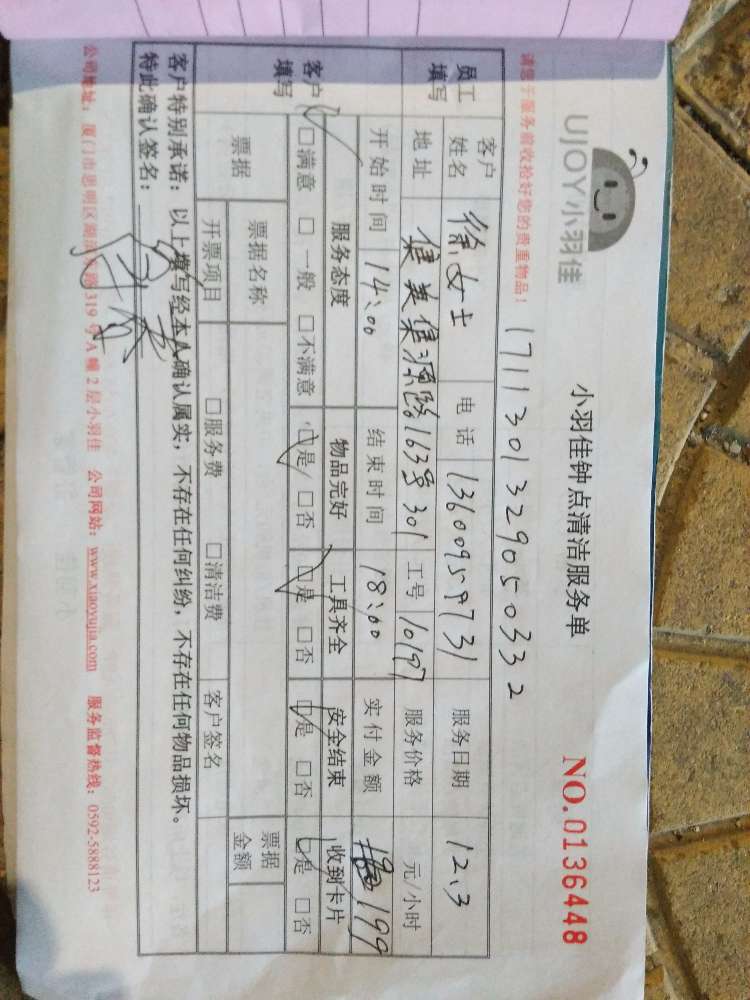 UJOY小羽佳
小羽佳钟点清洁服务单
NO.0136448
请您于服务前收拾好您的贵重物品！
171130132905033 2
员工填写 客户姓名 徐女士 电话 13600959731 服务日期 12.3
地址 集美集源路163号301 工号 10197 服务价格 元/小时
开始时间 14:00 结束时间 18:00 实付金额 199
客户填写 服务态度 物品完好 工具齐全 安全结束 收到卡片
□满意 □一般 □不满意 □是 □否 □是 □否 □是 □否 □是 □否
票据 票据名称 票据金额
开票项目 □服务费 □清洁费 客户签名
客户特别承诺：以上填写经本人确认属实，不存在任何纠纷，不存在任何物品损坏。
特此确认签名：
公司地址：厦门市思明区湖滨 路319号A幢2层小羽佳 公司网站：www.xiaoyujia.com 服务监督热线：0592-5888123